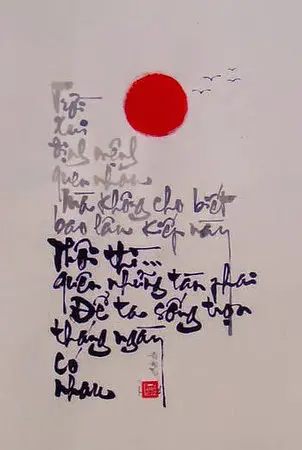 Trời
Xui
định mệnh
quen nhau
Mà không cho biết
bao lâu kiếp này
Thôi thì...
quên những tàn phai
Để ta sống trọn
tháng ngày
Có
nhau